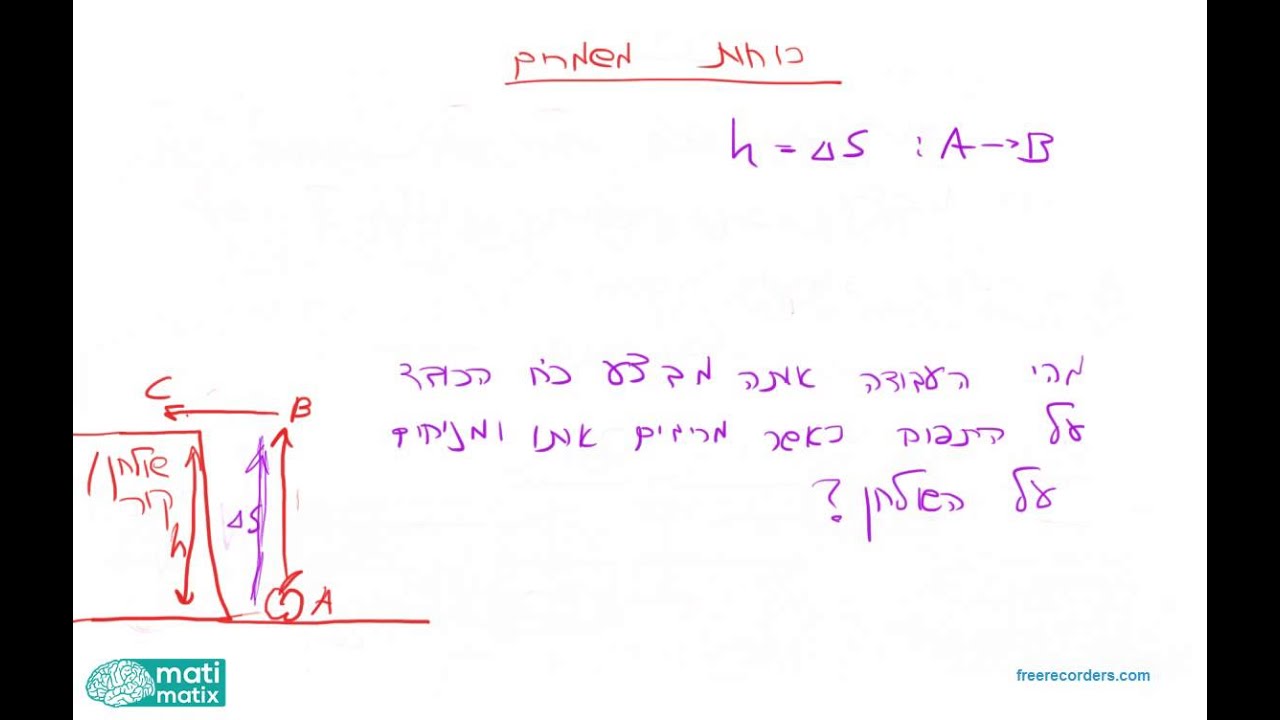 כוחות משמרים
h = ΔS : A → B
מהי העבודה אותה מבצע כח הכובד
על התפוח כאשר מרימים אותו ומניחים
על השולחן?
C
B
שולחן/
קיר
h
ΔS
A
mati
matix
freerecorders.com